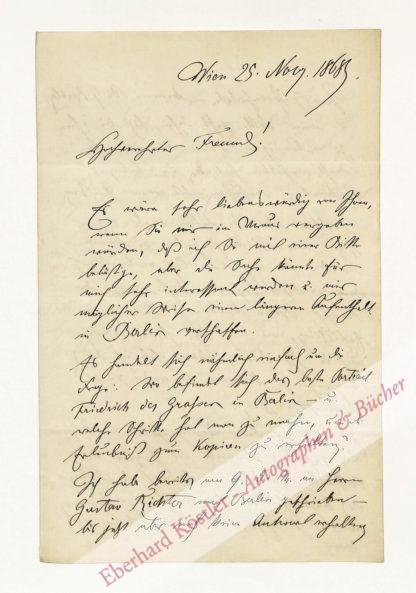 Wien 25. Nov. 1868.
Hochverehrter Freund!
Es wäre sehr liebenswürdig von Ihnen,
wenn Sie mir im Voraus vergeben
würden, daß ich Sie mit einer Bitte
belästige, aber die Sache könnte für
mich sehr interessant werden u. mir
möglicher Weise einen längeren Aufenthalt
in Berlin verschaffen.
Es handelt sich nähmlich einfach um die
Frage: Wo befindet sich das beste Portrait
Friedrich des Großen in Berlin – u.
welche Schritte hat man zu machen, um die
Erlaubniß zum Kopiren zu erhalten?
Ich habe bereits am an Herrn
Gustav Richter nach Berlin geschrieben –
bis jetzt aber noch keine Antwort erhalten
Eberhard Köstler · Autographen & Bücher